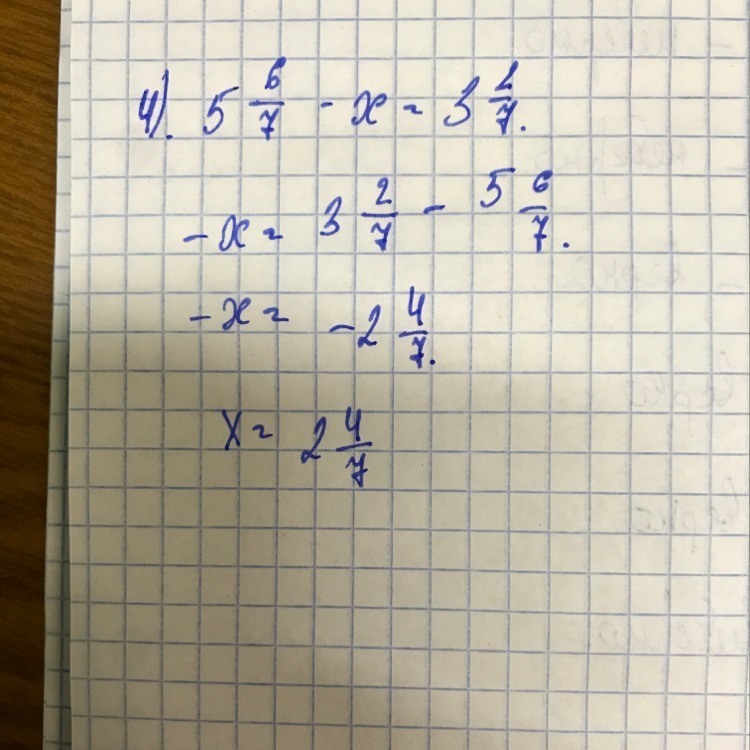 4). 5 6/7 - x = 3 2/7.
-x = 3 2/7 - 5 6/7.
-x = -2 4/7.
x = 2 4/7